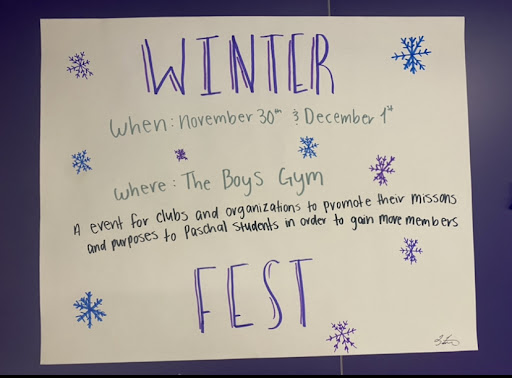 WINTER
when: November 30th & December 1st
where: The Boys Gym
A event for clubs and organizations to promote their missons
and purposes to Paschal students in order to gain more members
FEST